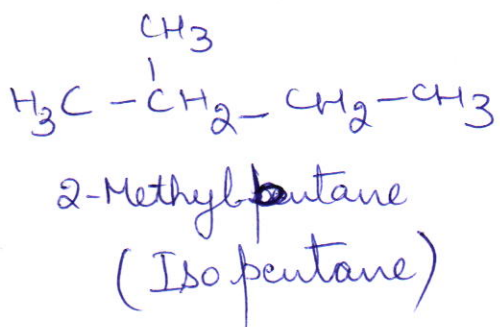 CH3
H3C - CH2 - CH2 - CH3
2-Methyl
(Iso pentane)